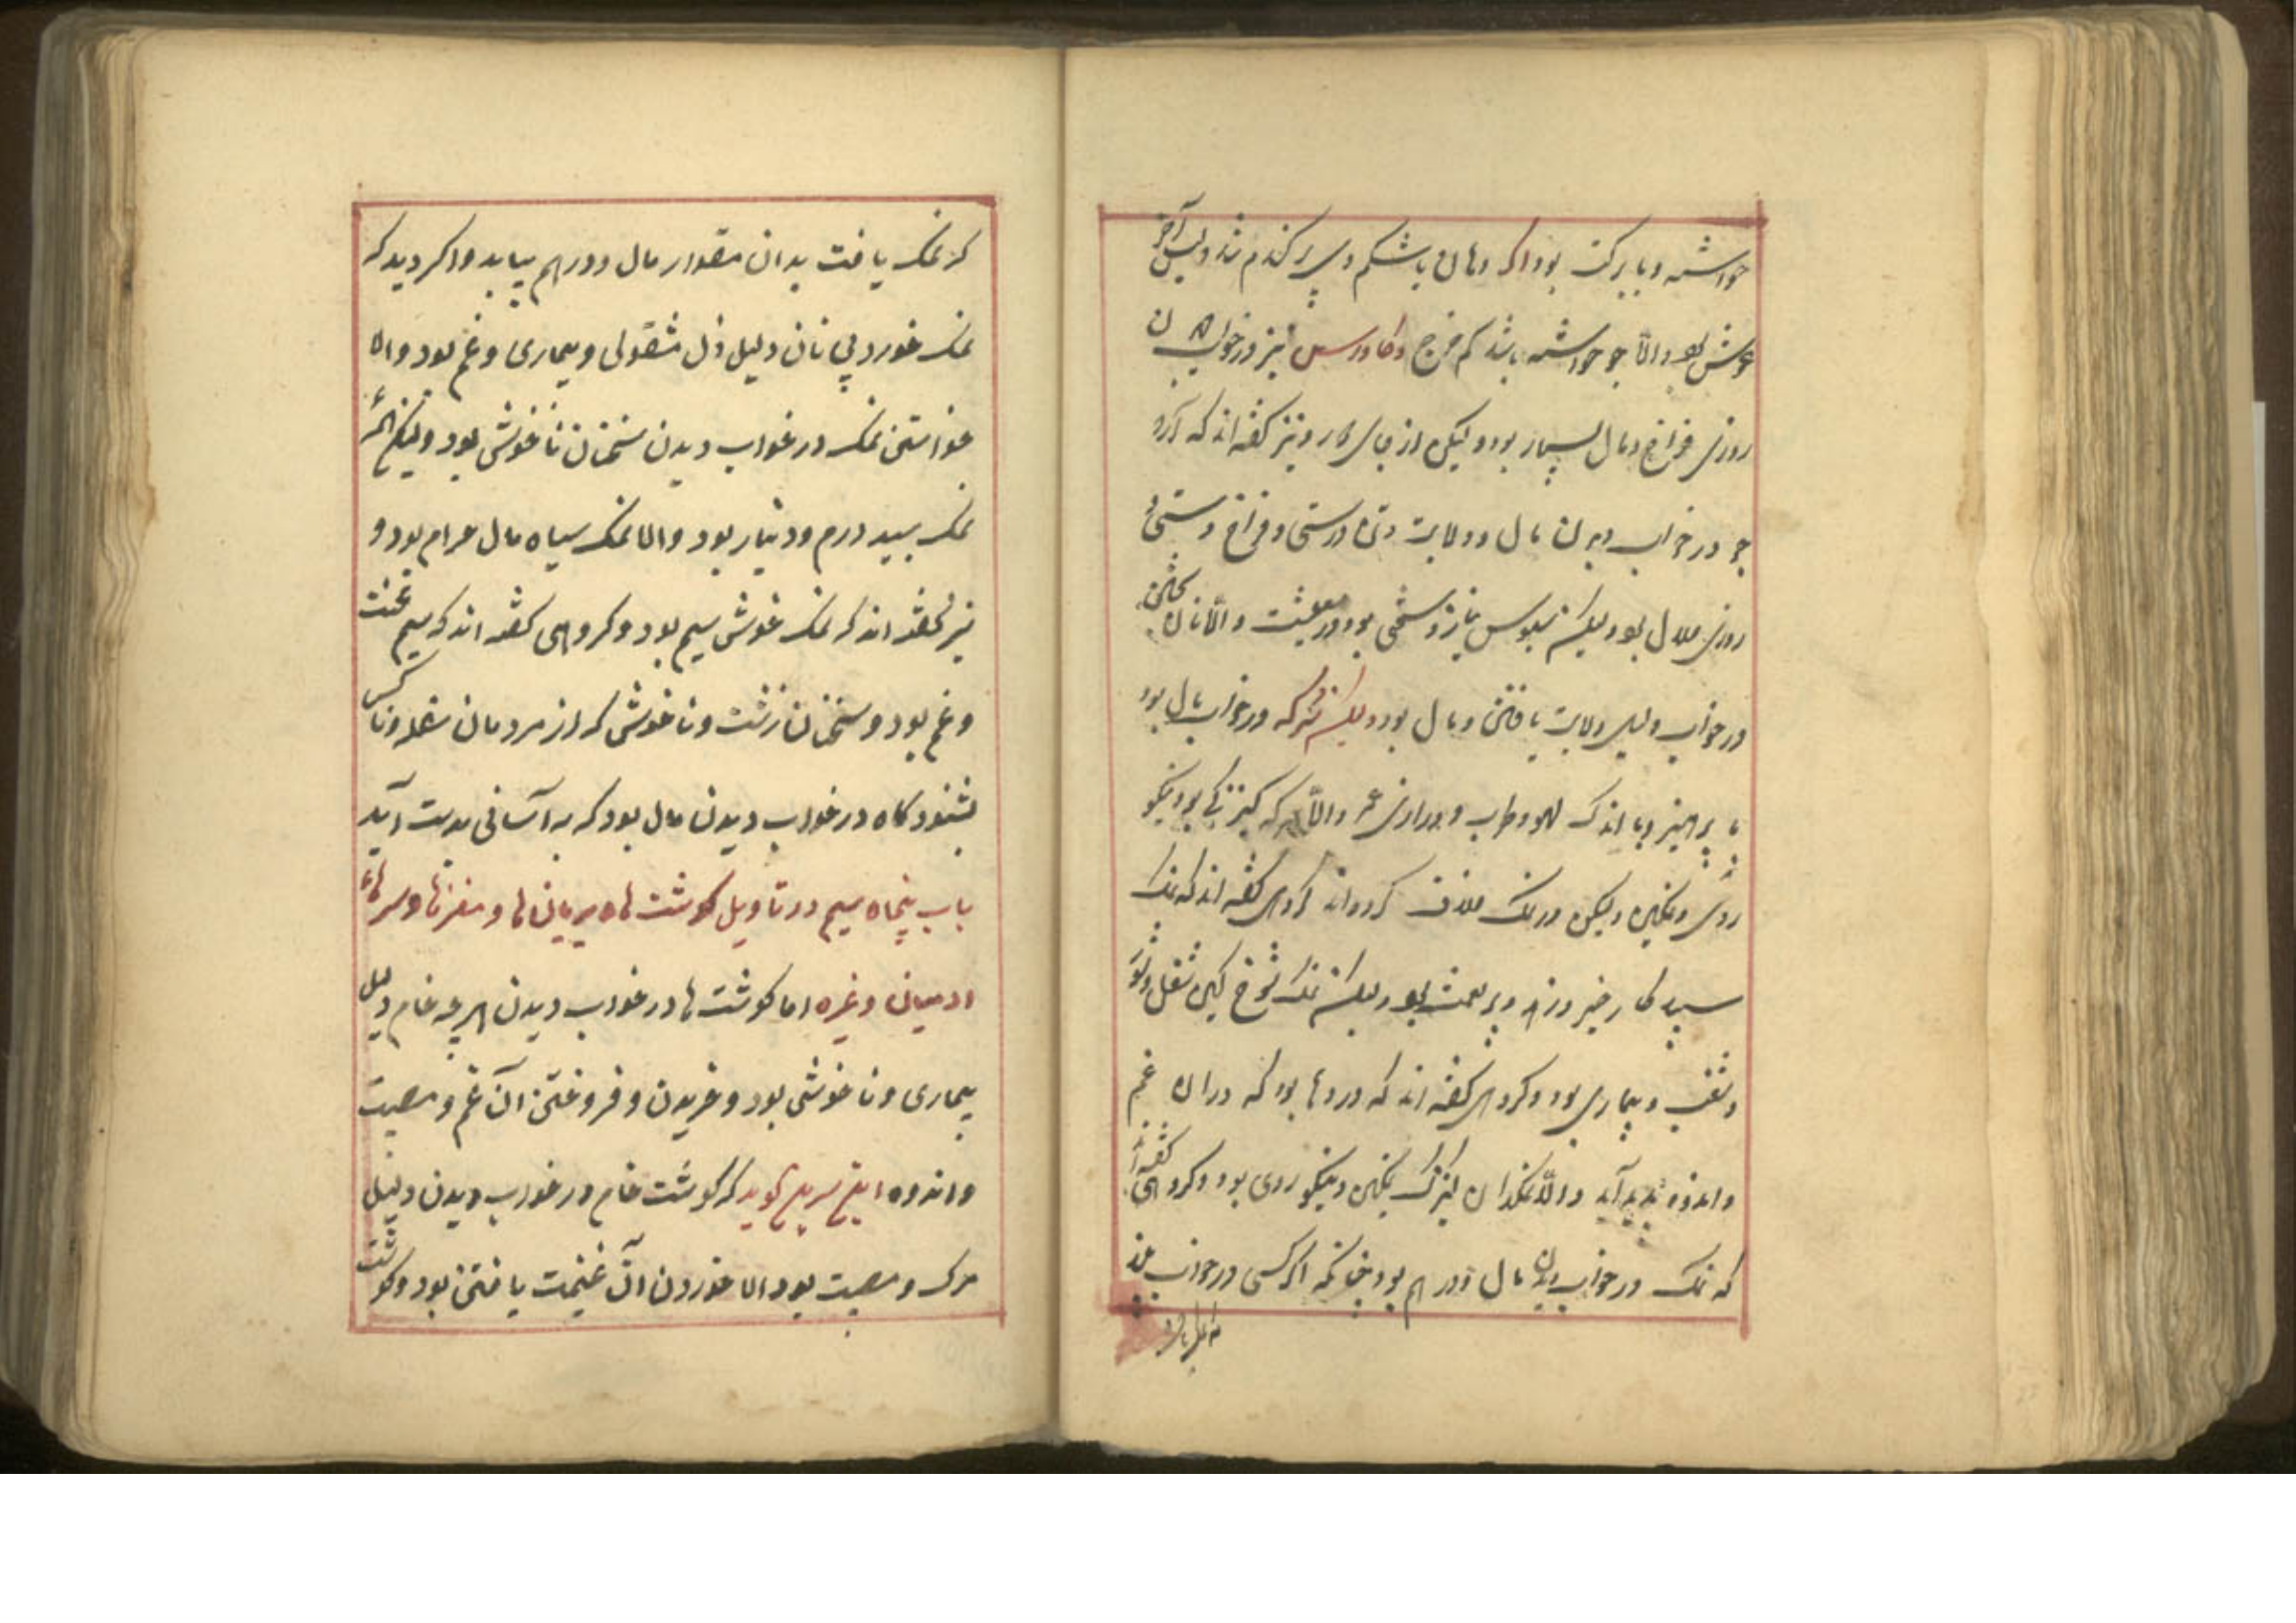 خواسته و با برکت بود اکر دهان یا شکم وی پر کندم شد دلیل آخر
عمرش بود والا جو خواسته باشد کم خرج وکاورس نیز در خواب
روزی فراخ و مال بسیار بود ولیکن از جای کار و نیز کفته اند که آرد
جو در خواب دیدن مال و ولایت و تن درستی و فراخ دستی و
روزی حلال بود ولیکن سبوس نان و سختی بود در معیشت والا نان
در خواب دلیل ولایت یافتن و مال بود ولیکن که در خواب مال بود
با پرهیز و با اندک لهو و طرب و درازی عمر والا سرکه کنیزکی بود نیکو
روی و نمکین ولیکن در نمک خلاف کرده اند کروهی کفته اند که نمک
سپید کار خیر و زهد و پر نعمت بود ولیکن نمک شوخ کین شغل و شور
و شغب و بیماری بود و کروهی کفته اند که دردها بود که در آن غم
و اندوه پدید آید والا نمکدان کنیزک نمکین و نیکو روی بود و کروهی کفته اند
که نمک در خواب دیدن مال و درهم بود چنانکه اکر کسی در خواب بیند
که نمک یافت بدان مقدار مال و درهم بیابد واکر دید که
نمک خورد بی نان دلیل ذل مشغولی و بیماری و غم بود والا
خواستن نمک در خواب دیدن سخنان ناخوش بود ولیکن
نمک سپید درم و دینار بود والا نمک سیاه مال حرام بود و
نیز کفته اند که نمک خوش سیم بود و کروهی کفته اند که سیم محنت
و غم بود و سخنان زشت و ناخوش که از مردمان سفله و ناکس
بشنود کاه در خواب دیدن مال بود که به آسانی بدست آید
باب پنجاه سیم در تاویل کوشت ها و بریان ها و مغزها و سرهاء
ادمیان و غیره اما کوشت ها در خواب دیدن هرچه خام دلیل
بیماری و ناخوشی بود و خریدن و فروختن آن غم و مصیبت
و اندوه ابن سیرین کوید که کوشت خام در خواب دیدن دلیل
مرک و مصیبت بود الا خوردن آن غنیمت یافتن بود و کوشت